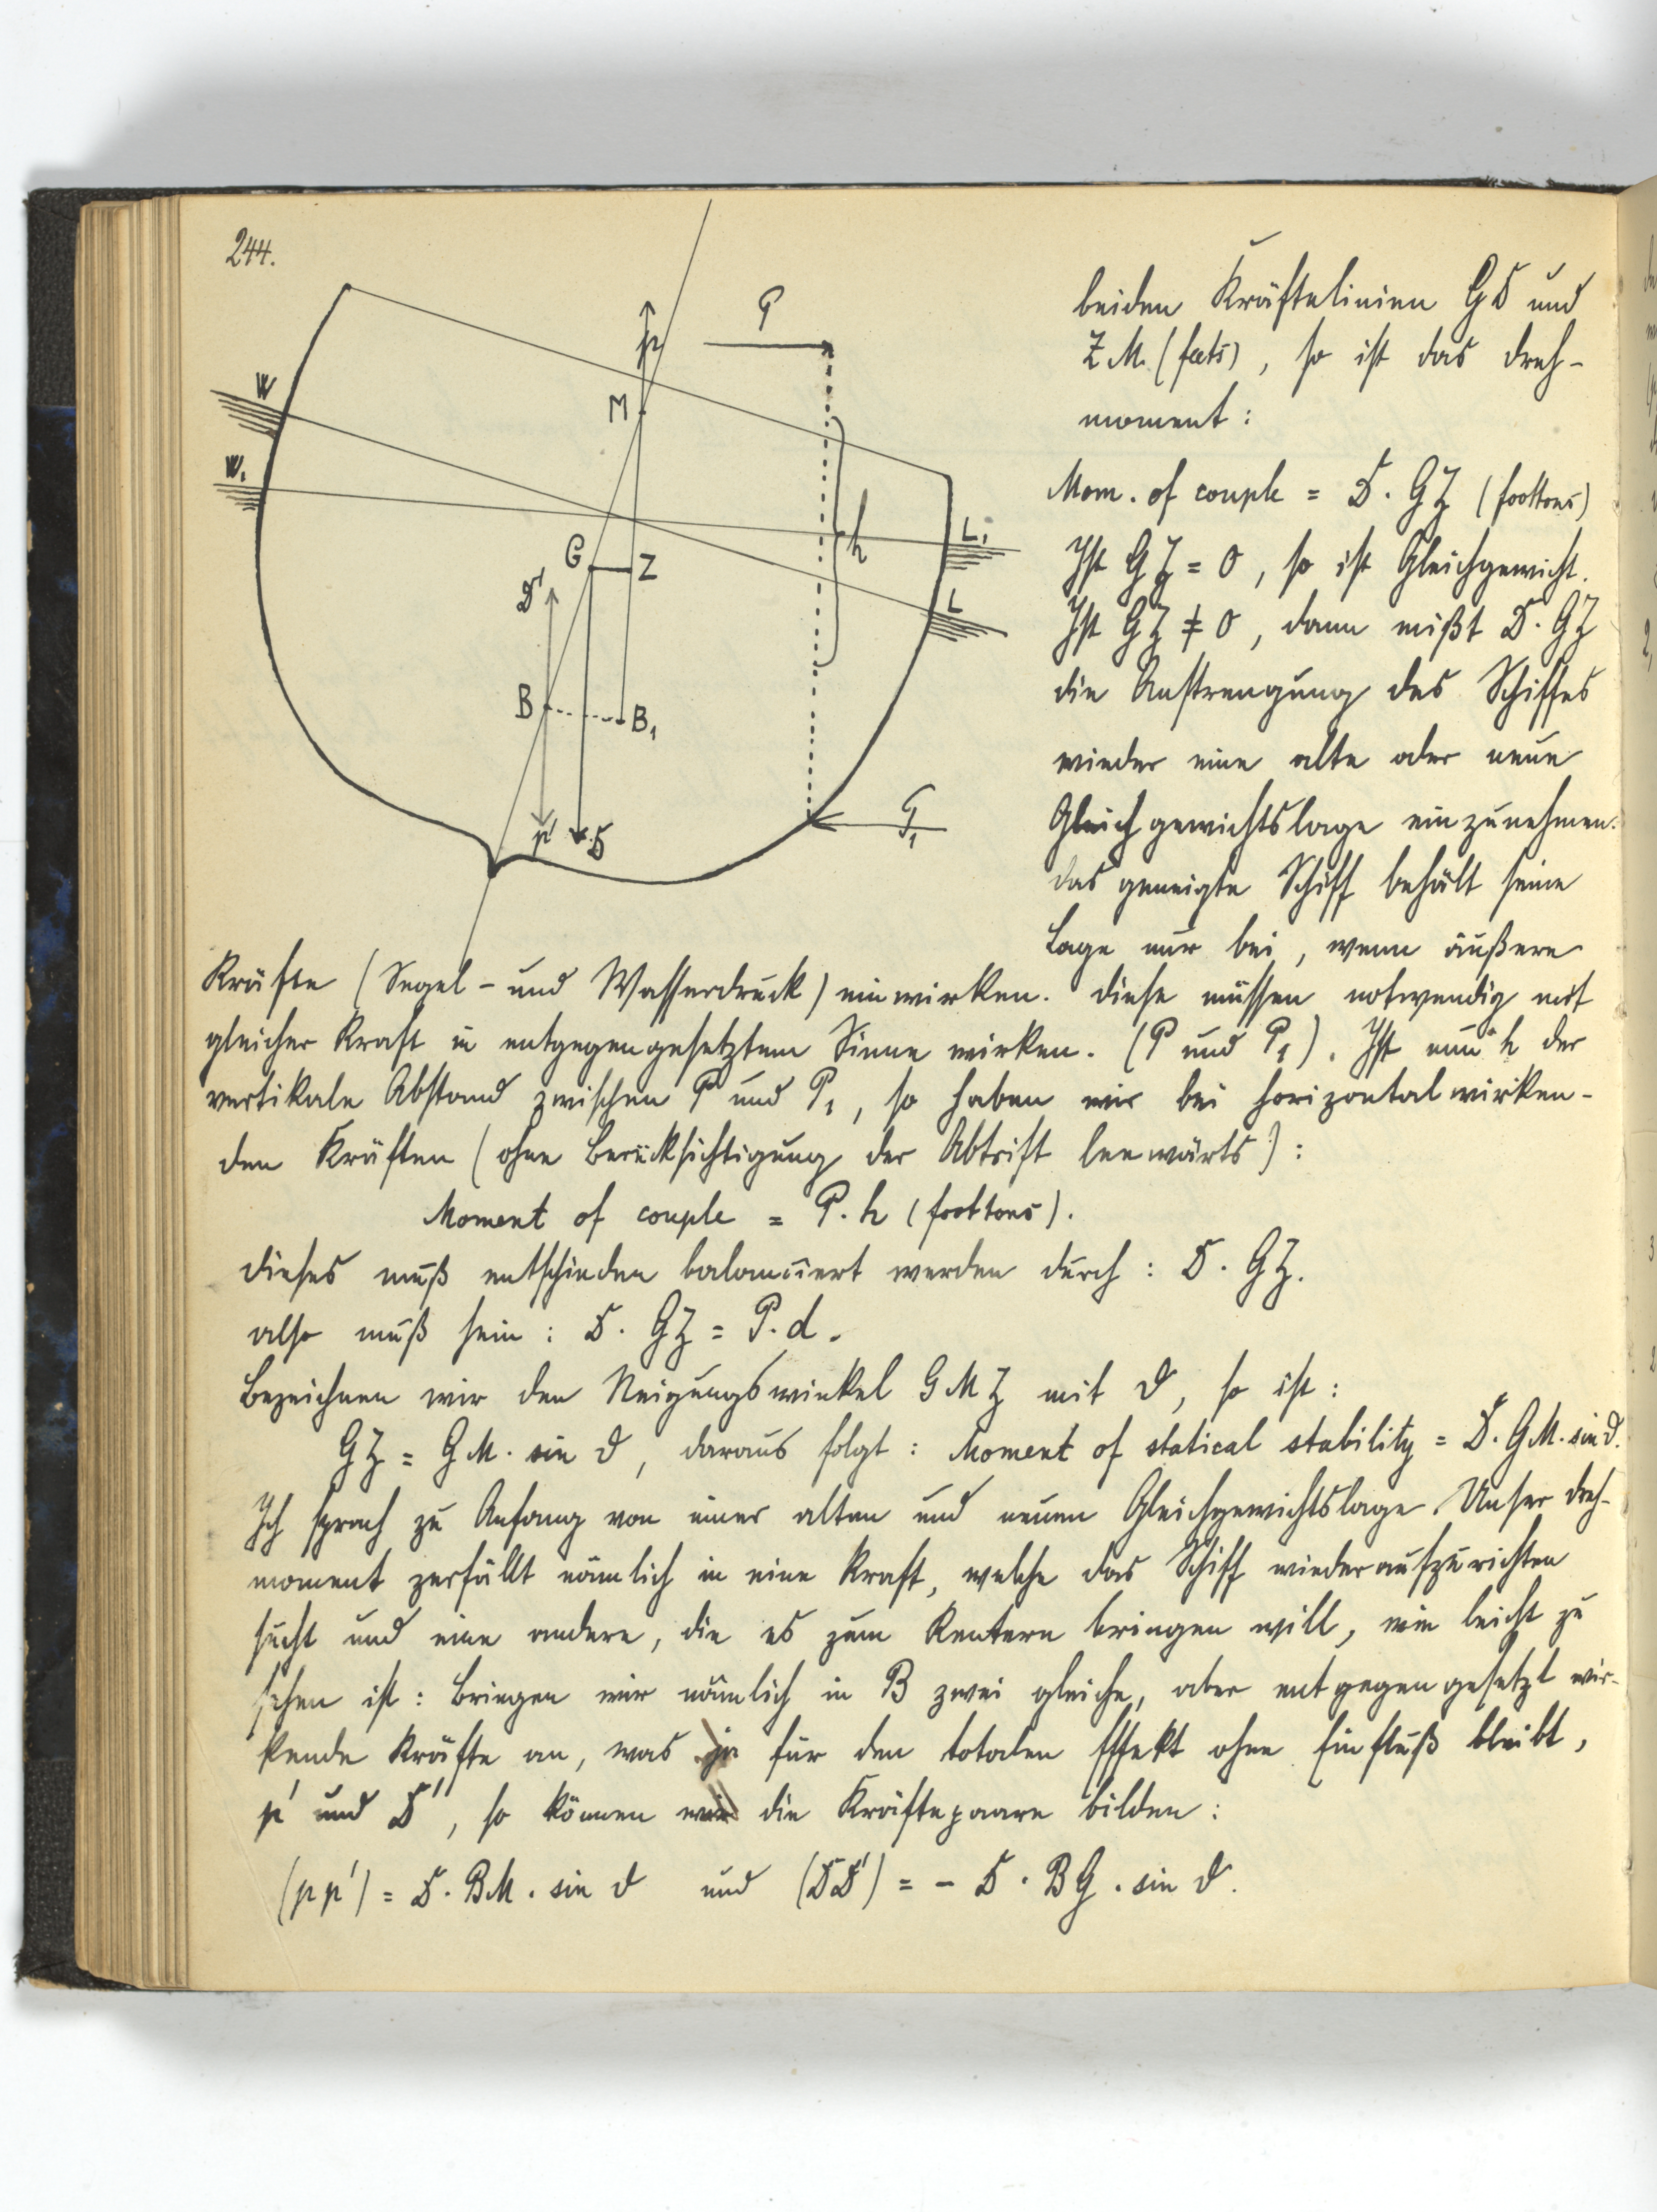 244.
P
p
W
M
W₁
h
L₁
G
Z
D'
L
B
B₁
P₁
p'
D
beiden Kräftelinien GD und
ZM (feets), so ist das Dreh-
moment:
Mom. of couple = D. GZ (foottons)
Ist GZ = 0, so ist Gleichgewicht.
Ist GZ ≠ 0, dann mißt D. GZ
die Anstrengung des Schiffes
wieder eine alte oder neue
Gleichgewichtslage einzunehmen.
Das geneigte Schiff behält seine
Lage nur bei, wenn äußere
Kräfte (Segel- und Wasserdruck) einwirken. Diese müssen notwendig mit
gleicher Kraft in entgegengesetztem Sinne wirken. (P und P₁). Ist nun h der
vertikale Abstand zwischen P und P₁, so haben wir bei horizontal wirken-
den Kräften (ohne Berücksichtigung der Abtrift leewärts):
Moment of couple = P. h (foottons).
Dieses muß entschieden balanciert werden durch: D. GZ.
also muß sein: D. GZ = P. d.
Bezeichnen wir den Neigungswinkel GMZ mit ϑ, so ist:
GZ = GM. sin ϑ, daraus folgt: Moment of statical stability = D. GM. sin ϑ.
Ich sprach zu Anfang von einer alten und neuen Gleichgewichtslage. Unser Dreh-
moment zerfällt nämlich in eine Kraft, welche das Schiff wiederaufzurichten
sucht und eine andere, die es zum Kentern bringen will, wie leicht zu
sehen ist: Bringen wir nämlich in B zwei gleiche, aber entgegengesetzt wir-
kende Kräfte an, was ja für den totalen Effekt ohne Einfluß bleibt,
p' und D', so können wir die Kräftepaare bilden:
(pp') = D. BM. sin ϑ und (DD') = - D. BG. sin ϑ.